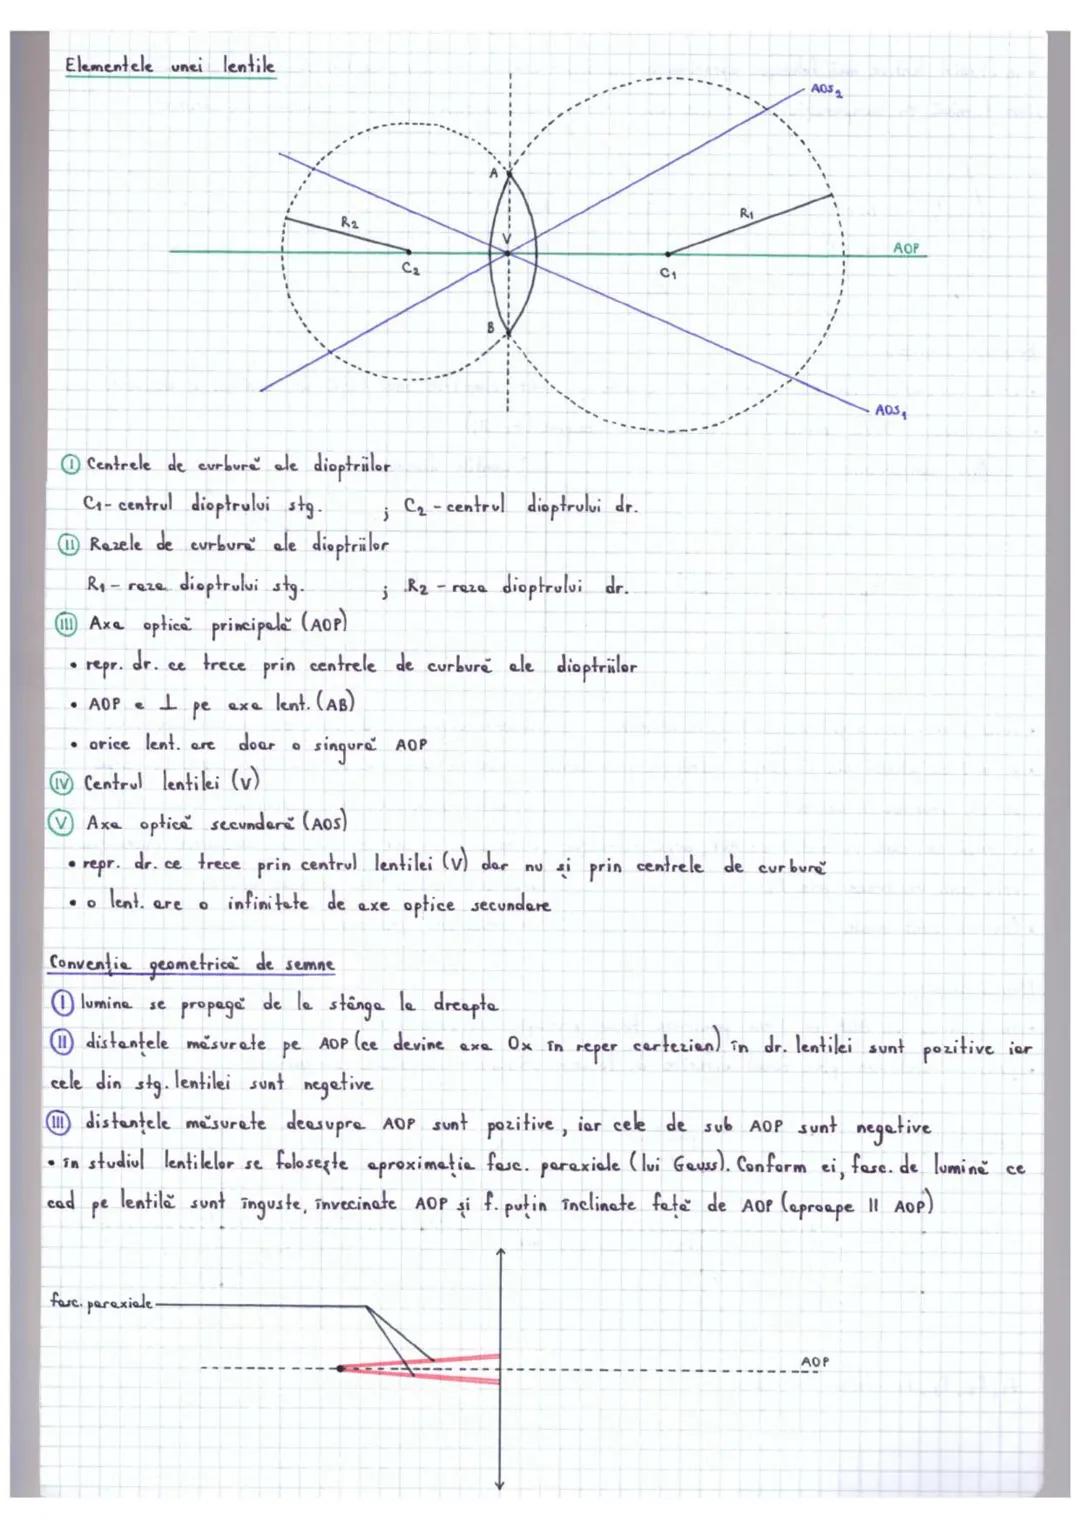 Elementele unei lentile
AOS2
A
R2
R1
V
AOP
C2
C1
B
AOS1
I Centrele de curbură ale dioptriilor
C1 - centrul dioptrului stg. ; C2 - centrul dioptrului dr.
II Razele de curbură ale dioptriilor
R1 - raza dioptrului stg. ; R2 - raza dioptrului dr.
III Axa optică principală (AOP)
• repr. dr. ce trece prin centrele de curbură ale dioptriilor
• AOP e ⊥ pe axa lent. (AB)
• orice lent. are doar o singură AOP
IV Centrul lentilei (V)
V Axa optică secundară (AOS)
• repr. dr. ce trece prin centrul lentilei (V) dar nu și prin centrele de curbură
• o lent. are o infinitate de axe optice secundare
Convenția geometrică de semne
I lumina se propagă de la stânga la dreapta
II distanțele măsurate pe AOP (ce devine axa Ox în reper cartezian) în dr. lentilei sunt pozitive iar
cele din stg. lentilei sunt negative
III distanțele măsurate deasupra AOP sunt pozitive, iar cele de sub AOP sunt negative
• în studiul lentilelor se folosește aproximația fasc. paraxiale (lui Gauss). Conform ei, fasc. de lumină ce
cad pe lentilă sunt înguste, învecinate AOP și f. puțin înclinate față de AOP (aproape || AOP)
fasc. paraxiale
AOP